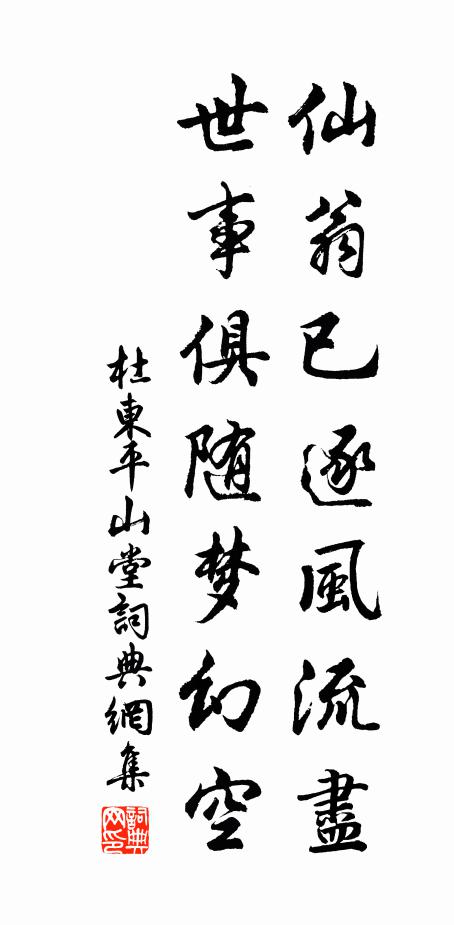 仙翁已逐風流盡
世事俱随梦幻空
杜東平山堂詞典網集
詞典网印